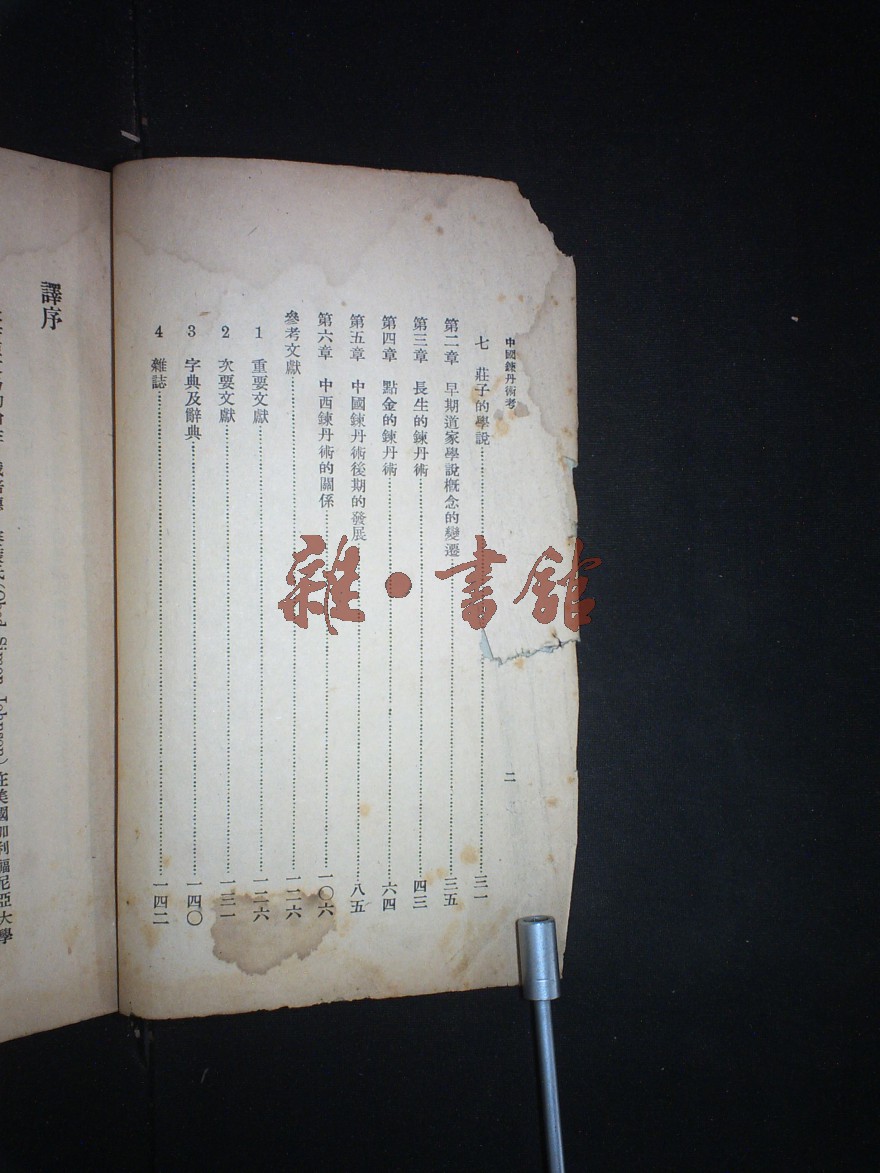 中國鍊丹術考
二
七 莊子的學說……三一
第二章 早期道家學說概念的變遷……三五
第三章 長生的鍊丹術……四三
第四章 點金的鍊丹術……六四
第五章 中國鍊丹術後期的發展……八五
第六章 中西鍊丹術的關係……一〇六
參考文獻……一二六
1 重要文獻……一二六
2 次要文獻……一三一
3 字典及辭典……一四〇
4 雜誌……一四二
譯序
(Obed Simon Johnson)在美國加利福尼亞大學
雜·書館